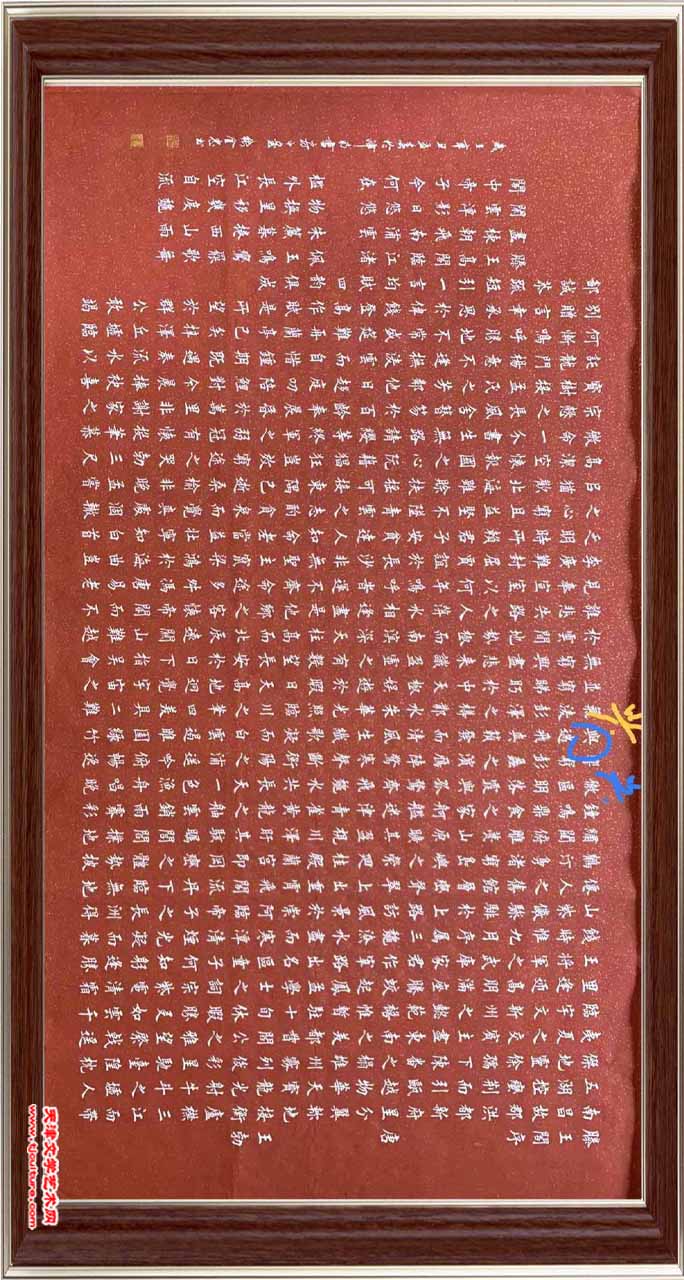 滕王閣序 唐 王勃
南昌故郡洪都新府星分翼軫地接衡廬襟三江而帶
五湖控蠻荊而引甌越物華天寶龍光射牛斗之墟人
傑地靈徐孺下陳蕃之榻雄州霧列俊彩星馳臺隍枕
夷夏之交賓主盡東南之美都督閻公之雅望棨戟遙
臨宇文新州之懿範襜帷暫駐十旬休暇勝友如雲千
里逢迎高朋滿座騰蛟起鳳孟學士之詞宗紫電清霜
王將軍之武庫家君作宰路出名區童子何知躬逢勝
餞時維九月序屬三秋潦水盡而寒潭清煙光凝而暮
山紫儼驂騑於上路訪風景於崇阿臨帝子之長洲得
仙人之舊館層巒聳翠上出重霄飛閣流丹下臨無地
鶴汀鳧渚窮島嶼之縈迴桂殿蘭宮即岡巒之體勢披
繡闥俯雕甍山原曠其盈視川澤紆其駭矚閭閻撲地
鐘鳴鼎食之家舸艦迷津青雀黃龍之舳雲銷雨霽彩
徹區明落霞與孤鶩齊飛秋水共長天一色漁舟唱晚
響窮彭蠡之濱雁陣驚寒聲斷衡陽之浦遙襟甫暢逸
興遄飛爽籟發而清風生纖歌凝而白雲遏睢園綠竹
氣凌彭澤之樽鄴水朱華光照臨川之筆四美具二難
並窮睇眄於中天極娛遊於暇日天高地迥覺宇宙之
無窮興盡悲來識盈虛之有數望長安於日下目吳會
於雲間地勢極而南溟深天柱高而北辰遠關山難越
誰悲失路之人萍水相逢盡是他鄉之客懷帝閽而不
見奉宣室以何年嗚呼時運不齊命途多舛馮唐易老
李廣難封屈賈誼於長沙非無聖主竄梁鴻於海曲豈
乏明時所賴君子安貧達人知命老當益壯寧移白首
之心窮且益堅不墜青雲之志酌貪泉而覺爽處涸轍
以猶歡北海雖賒扶搖可接東隅已逝桑榆非晚孟嘗
高潔空懷報國之心阮籍猖狂豈效窮途之哭勃三尺
微命一介書生無路請纓等終軍之弱冠有懷投筆慕
宗慤之長風舍簪笏於百齡奉晨昏於萬里非謝家之
寶樹接孟氏之芳鄰他日趨庭叨陪鯉對今晨捧袂喜
託龍門楊意不逢撫凌雲而自惜鍾期既遇奏流水以
何慚嗚呼勝地不常盛筵難再蘭亭已矣梓澤丘墟臨
別贈言幸承恩於偉餞登高作賦是所望於群公敢竭
鄙誠恭疏短引一言均賦四韻俱成
滕王高閣臨江渚佩玉鳴鸞罷歌舞
畫棟朝飛南浦雲朱簾暮捲西山雨
閑雲潭影日悠悠物換星移幾度秋
閣中帝子今何在檻外長江空自流
天津文学艺术网
www.tjculture.com